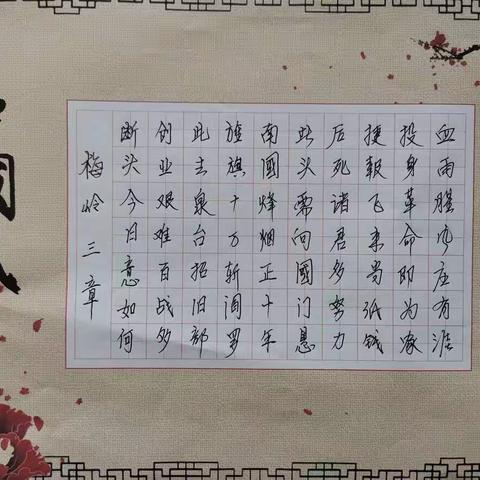 梅岭三章
断头今日意如何
创业艰难百战多
此去泉台招旧部
旌旗十万斩阎罗
南國烽烟正十年
此头需向國门悬
后死诸君多努力
捷报飞来当纸钱
投身革命即为家
血雨腥风应有涯